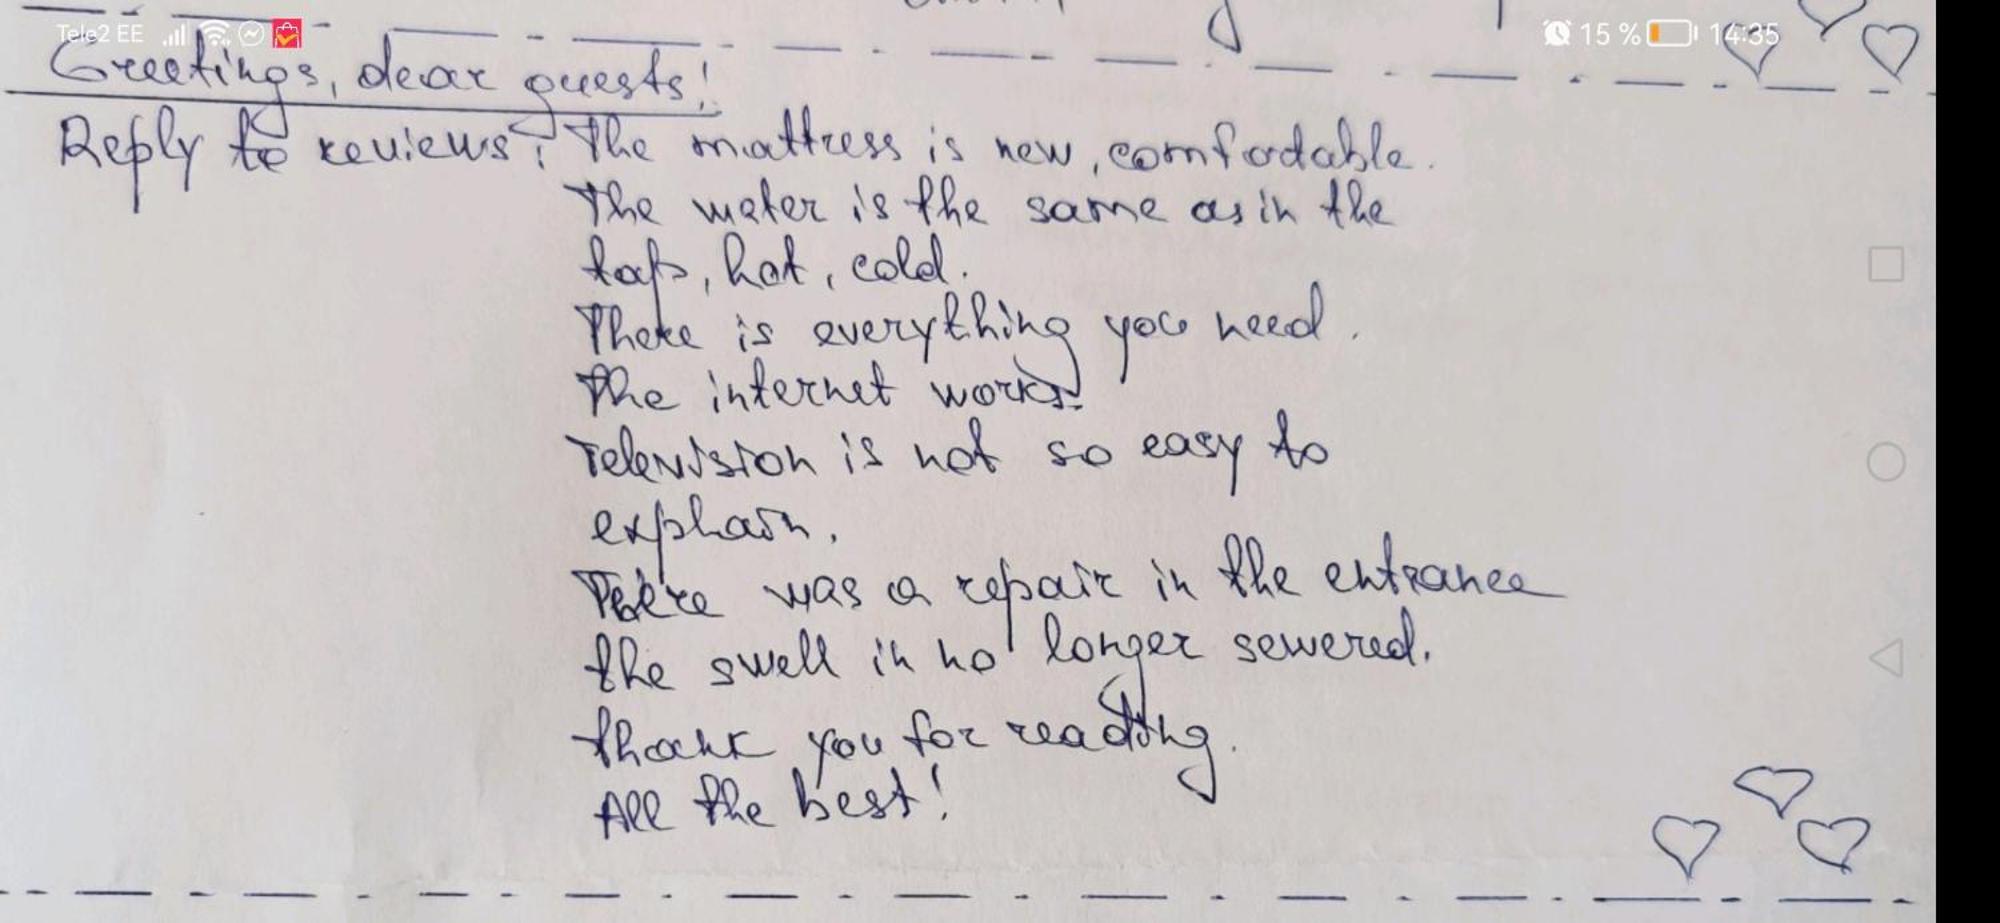 Tele2 EE
15 % 14:35
Greetings, dear guests!
Reply to reviews: The mattress is new, comfordable.
The water is the same as in the
taps, hot, cold.
There is everything you need.
The internet works.
Television is not so easy to
explain.
There was a repair in the entrance
the swell in no longer sewered.
thank you for reading.
All the best!